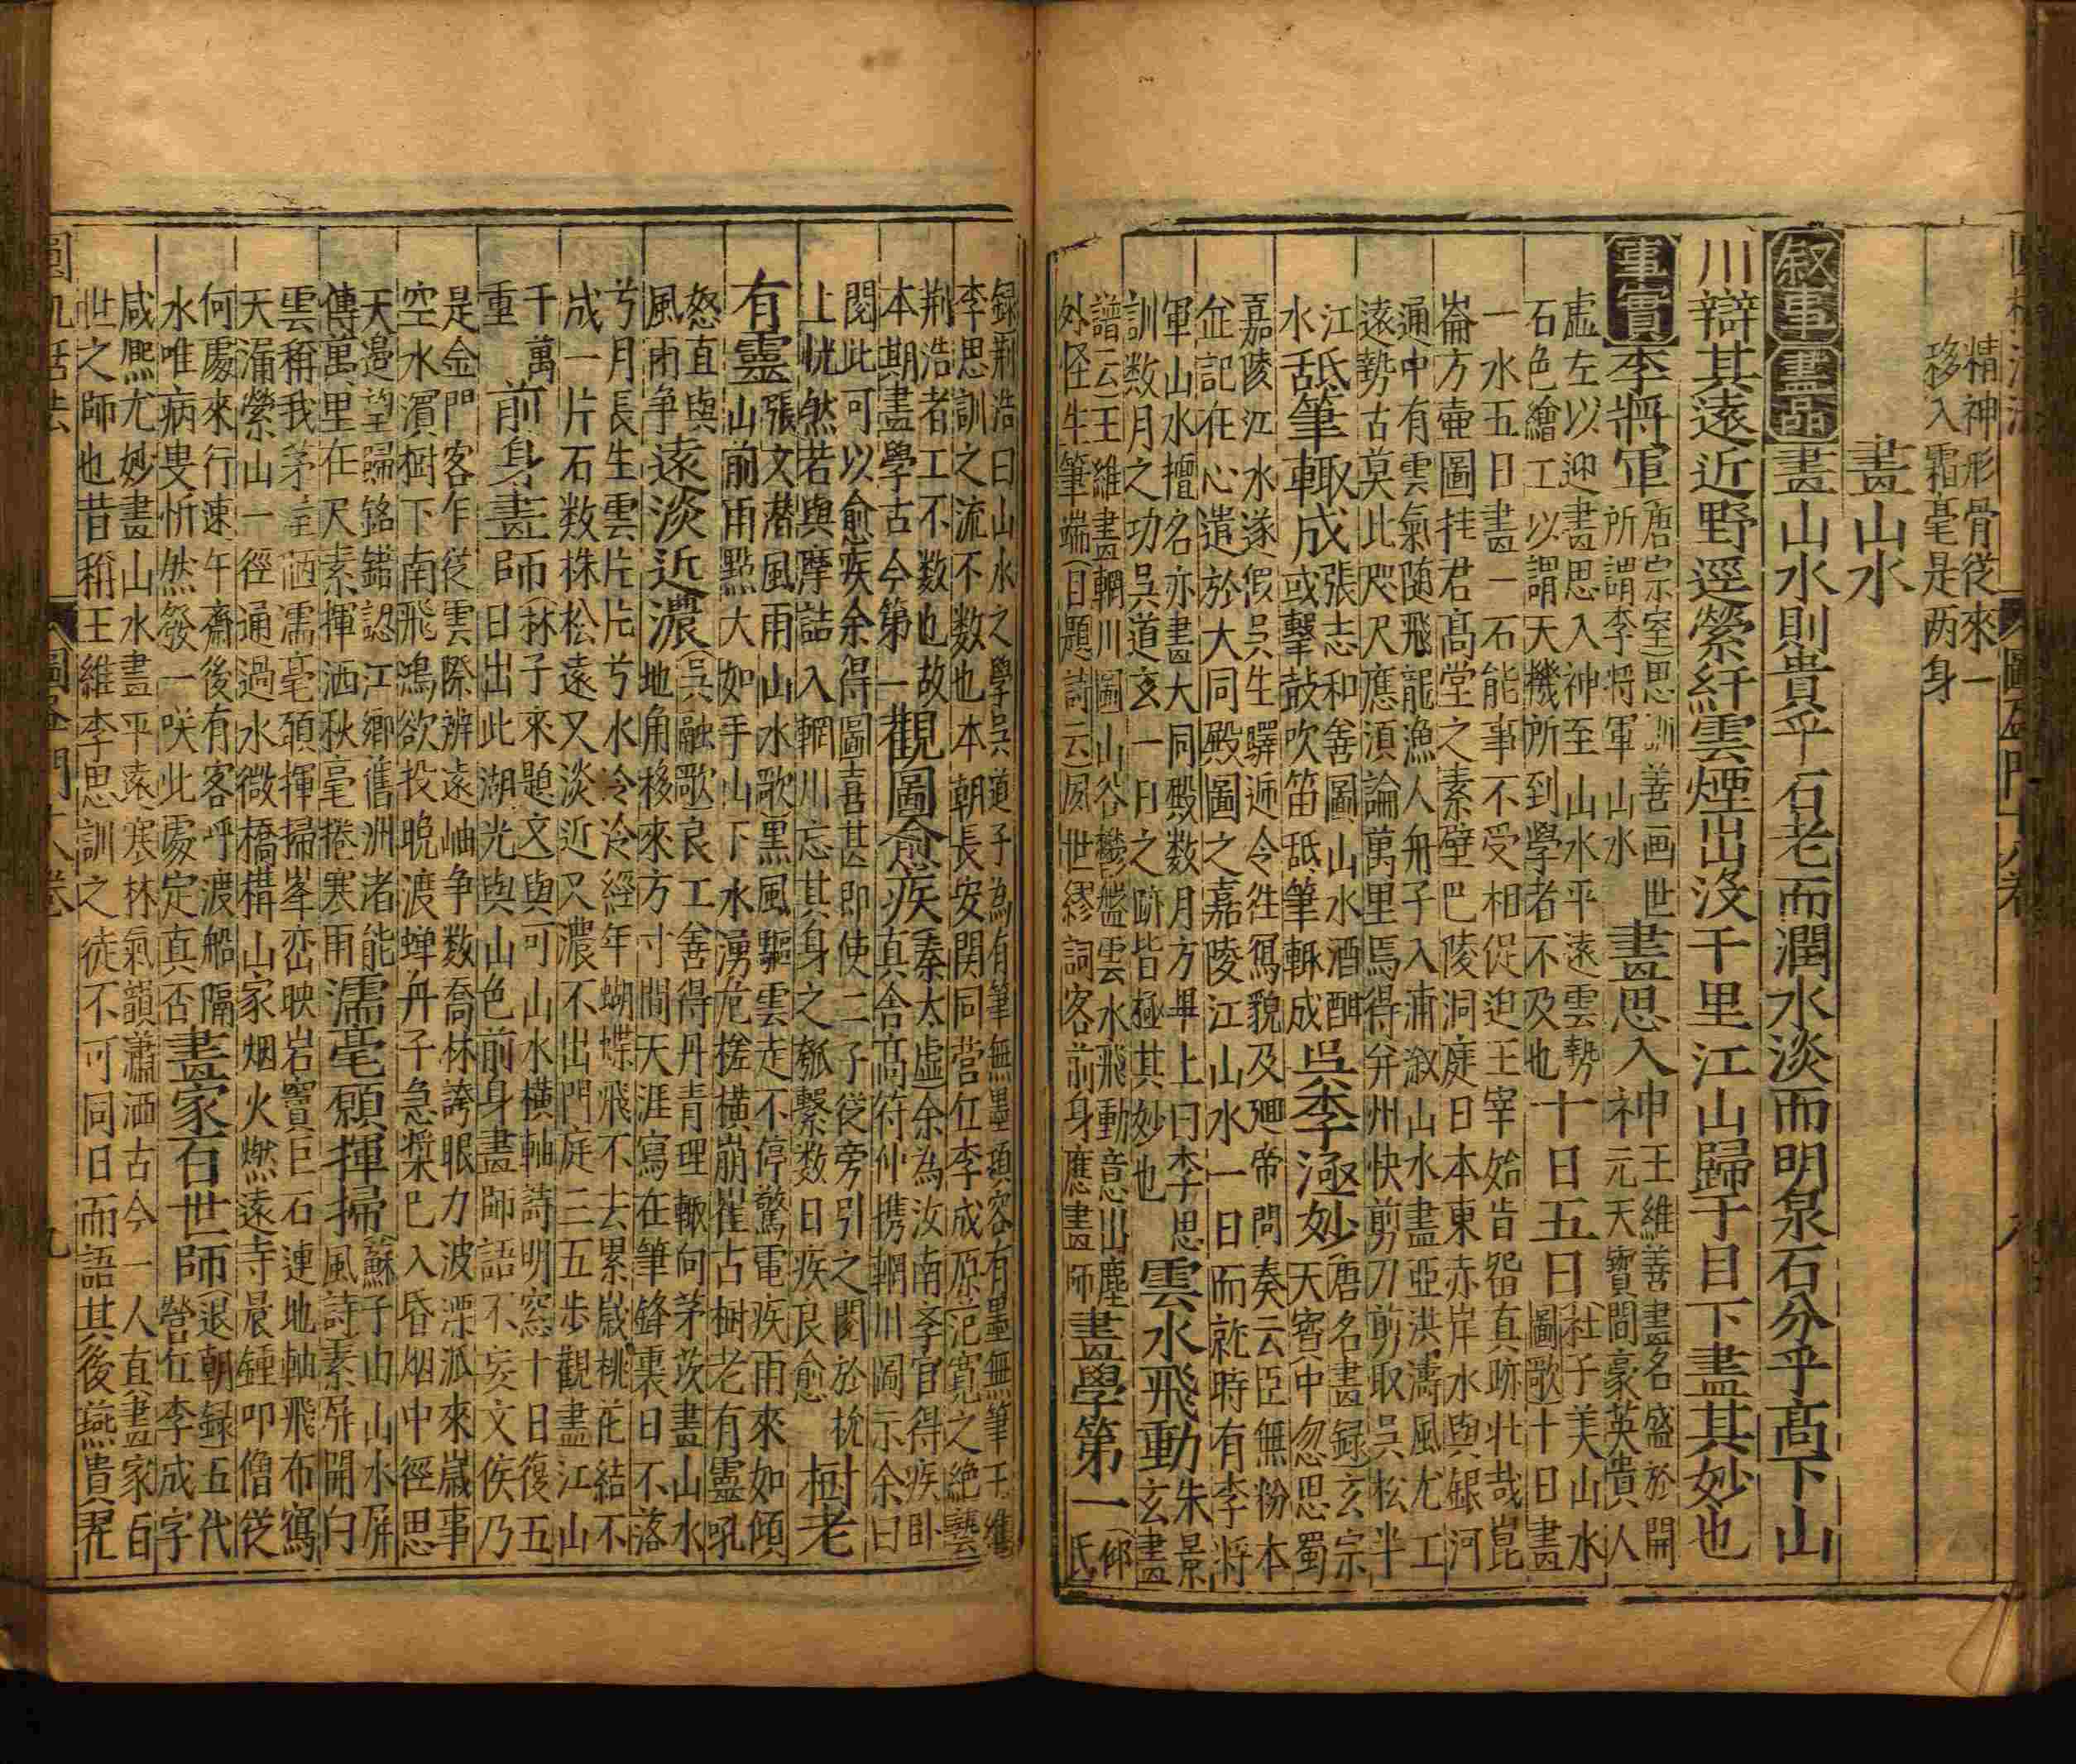 精神形骨從來一
移入霜毫是两身
畫山水
叙事畫品畫山水則貴乎石老而潤水淡而明泉石分乎高下山
川辯其遠近野逕縈紆雲煙出沒千里江山歸于目下盡其妙也
事實李將軍
唐宗室思訓善画世
所謂李將軍山水
畫思入神
王維善畫名盛於開
元天寳間豪英貴人
虚左以迎畫思入神至山水平遠雲勢
石色繪工以謂天機所到學者不及也
十日五日
杜子美山水
圖歌十日畫
一水五日畫一石能事不受相促迫王宰始肯留真跡壯哉崑
崙方壷圖挂君髙堂之素壁巴陵洞庭日本東赤岸水與銀河
通中有雲氣随飛龍漁人舟子入浦溆山水盡亞洪濤風尤工
遠勢古莫比咫尺應湏論萬里焉得并州快剪刀剪取吴松半
江水
舐筆輙成
張志和善圖山水酒酣
或擊鼓吹笛舐筆輙成
吳李極妙
唐名畫録玄宗
天寳中忽思蜀
嘉陵江水遂假吴生驛逓令徃寫貌及廻帝問奏云臣無粉本
並記在心遣於大同殿圖之嘉陵江山水一日而就時有李將
軍山水擅名亦畫大同殿数月方畢上曰李思
訓数月之功吴道玄一日之跡皆極其妙也
雲水飛動
朱景
玄畫
譜云王維畫輞川圖山谷欝盤雲水飛動意出塵
外怪生筆端自題詩云夙世繆詞客前身應畫師
畫學第一
録荆浩曰山水之學吴道子為有筆無墨項容有墨無筆王維
李思訓之流不数也本朝長安関同营丘李成原范寛之絶藝
荆浩者工不数也故
本期畫學古今第一
觀圖愈疾
秦太虚余為汝南李官得疾卧
真舍髙符仲携輞川圖示余曰
閱此可以愈疾余得圖喜甚即使二子從旁引之閱於枕
上恍然若與摩詰入輞川忘其身之匏繫数日疾良愈
樹老
有靈
張文潜風雨山水歌黒風驅雲走不停驚電疾雨來如傾
山前雨點大如手山下水湧危搓横崩崔古樹老有靈吼
怒直與
風雨争
遠淡近濃
吳融歌良工善得丹青理輙向茅茨畫山水
地角移來方寸間天涯寫在筆鋒裏日不落
兮月長生雲片片兮水冷冷經年蝴蝶飛不去累歳桃花結不
成一片石数株松遠又淡近又濃不出門庭三五步觀盡江山
千萬
重
前身畫師
林子來題文與可山水横軸詩明窓十日復五
日出此湖光與山色前身畫師語不妄文侯乃
是金門客乍從雲際辨遠岫争数喬林誇眼力波深派來歳事
空水濵樹下南飛鴻欲投晚渡蝉舟子急槳已入昏烟中徑思
天邉望歸銘錯認江郷舊洲渚能
傳萬里在尺素揮洒秋毫捲寒雨
濡毫頋揮掃
蘇子山山水屏
風詩素屏開白
雲稱我茅堂洒濡毫頋揮掃峯巒映岩竇巨石連地軸飛布寫
天漏縈山一徑通過水微橋構山家烟火燃遠寺晨鍾叩僧從
何處來行速午齋後有客呼渡船隔
水唯病叟忻然發一咲此處定真否
畫家百世師
退朝録五代
營丘李成字
咸熈尤妙畫山水畫平遠寒林氣韻瀟洒古今一人直畫家百
世之師也昔稱王維李思訓之徒不可同日而語其後燕貴翟